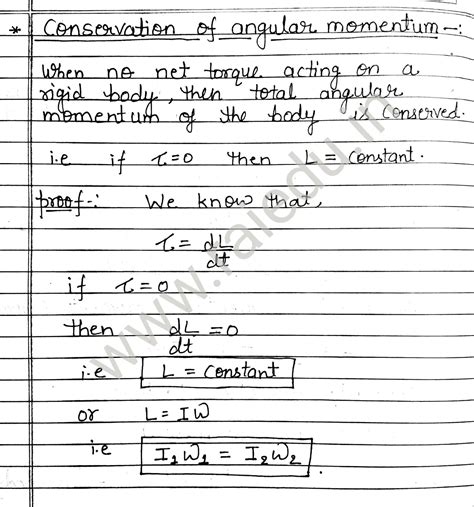 * Conservation of angular momentum -:
When no net torque acting on a
rigid body, then total angular
momentum of the body is conserved.
i.e if τ=0 then L = constant.
proof-: We know that,
τ = dL/dt
if τ = 0
then dL/dt = 0
i.e L = constant
or L = IW
i.e I₁W₁ = I₂W₂.
www.raiedu.in